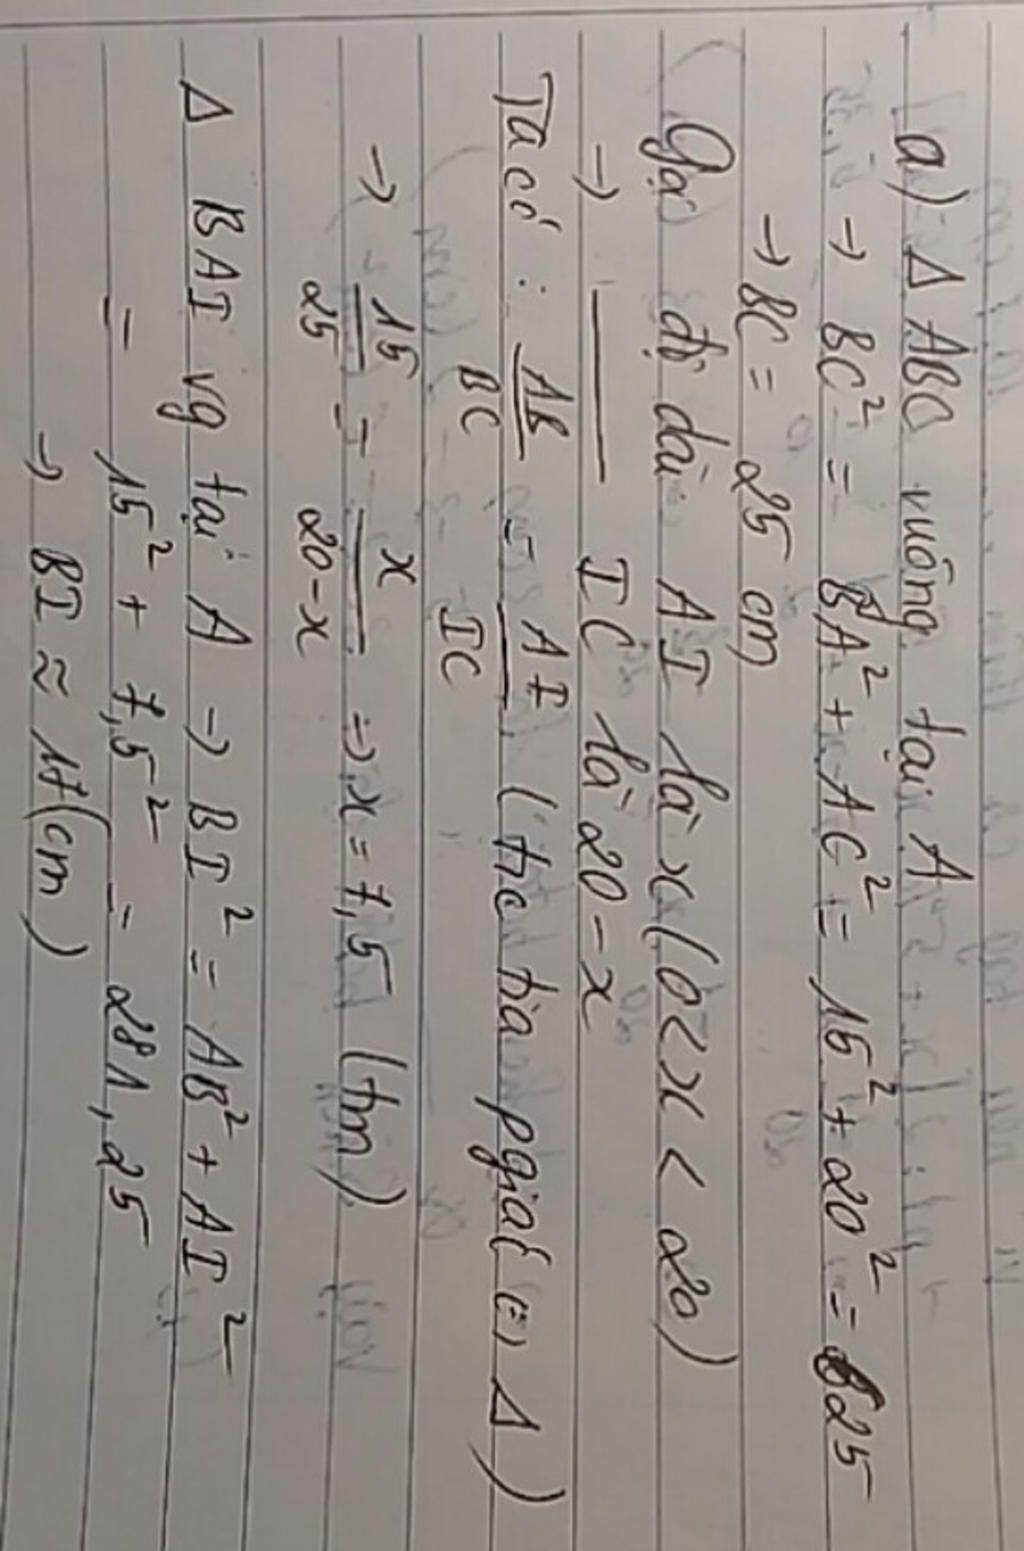 a) Δ ABC vuông tại A
→ BC² = BA² + AC² = 15² + 20² = 625
→ BC = 25 cm
Gọi độ dài AI là x (0 < x < 20)
→ ——— IC là 20 - x
Ta có : AB/BC = AI/IC (t/c tia pgiác Δ)
→ 15/25 = x/20-x => x = 7,5 (tm)
Δ BAI vg tại A → BI² = AB² + AI²
= 15² + 7,5² = 281,25
→ BI ≈ 17 (cm)